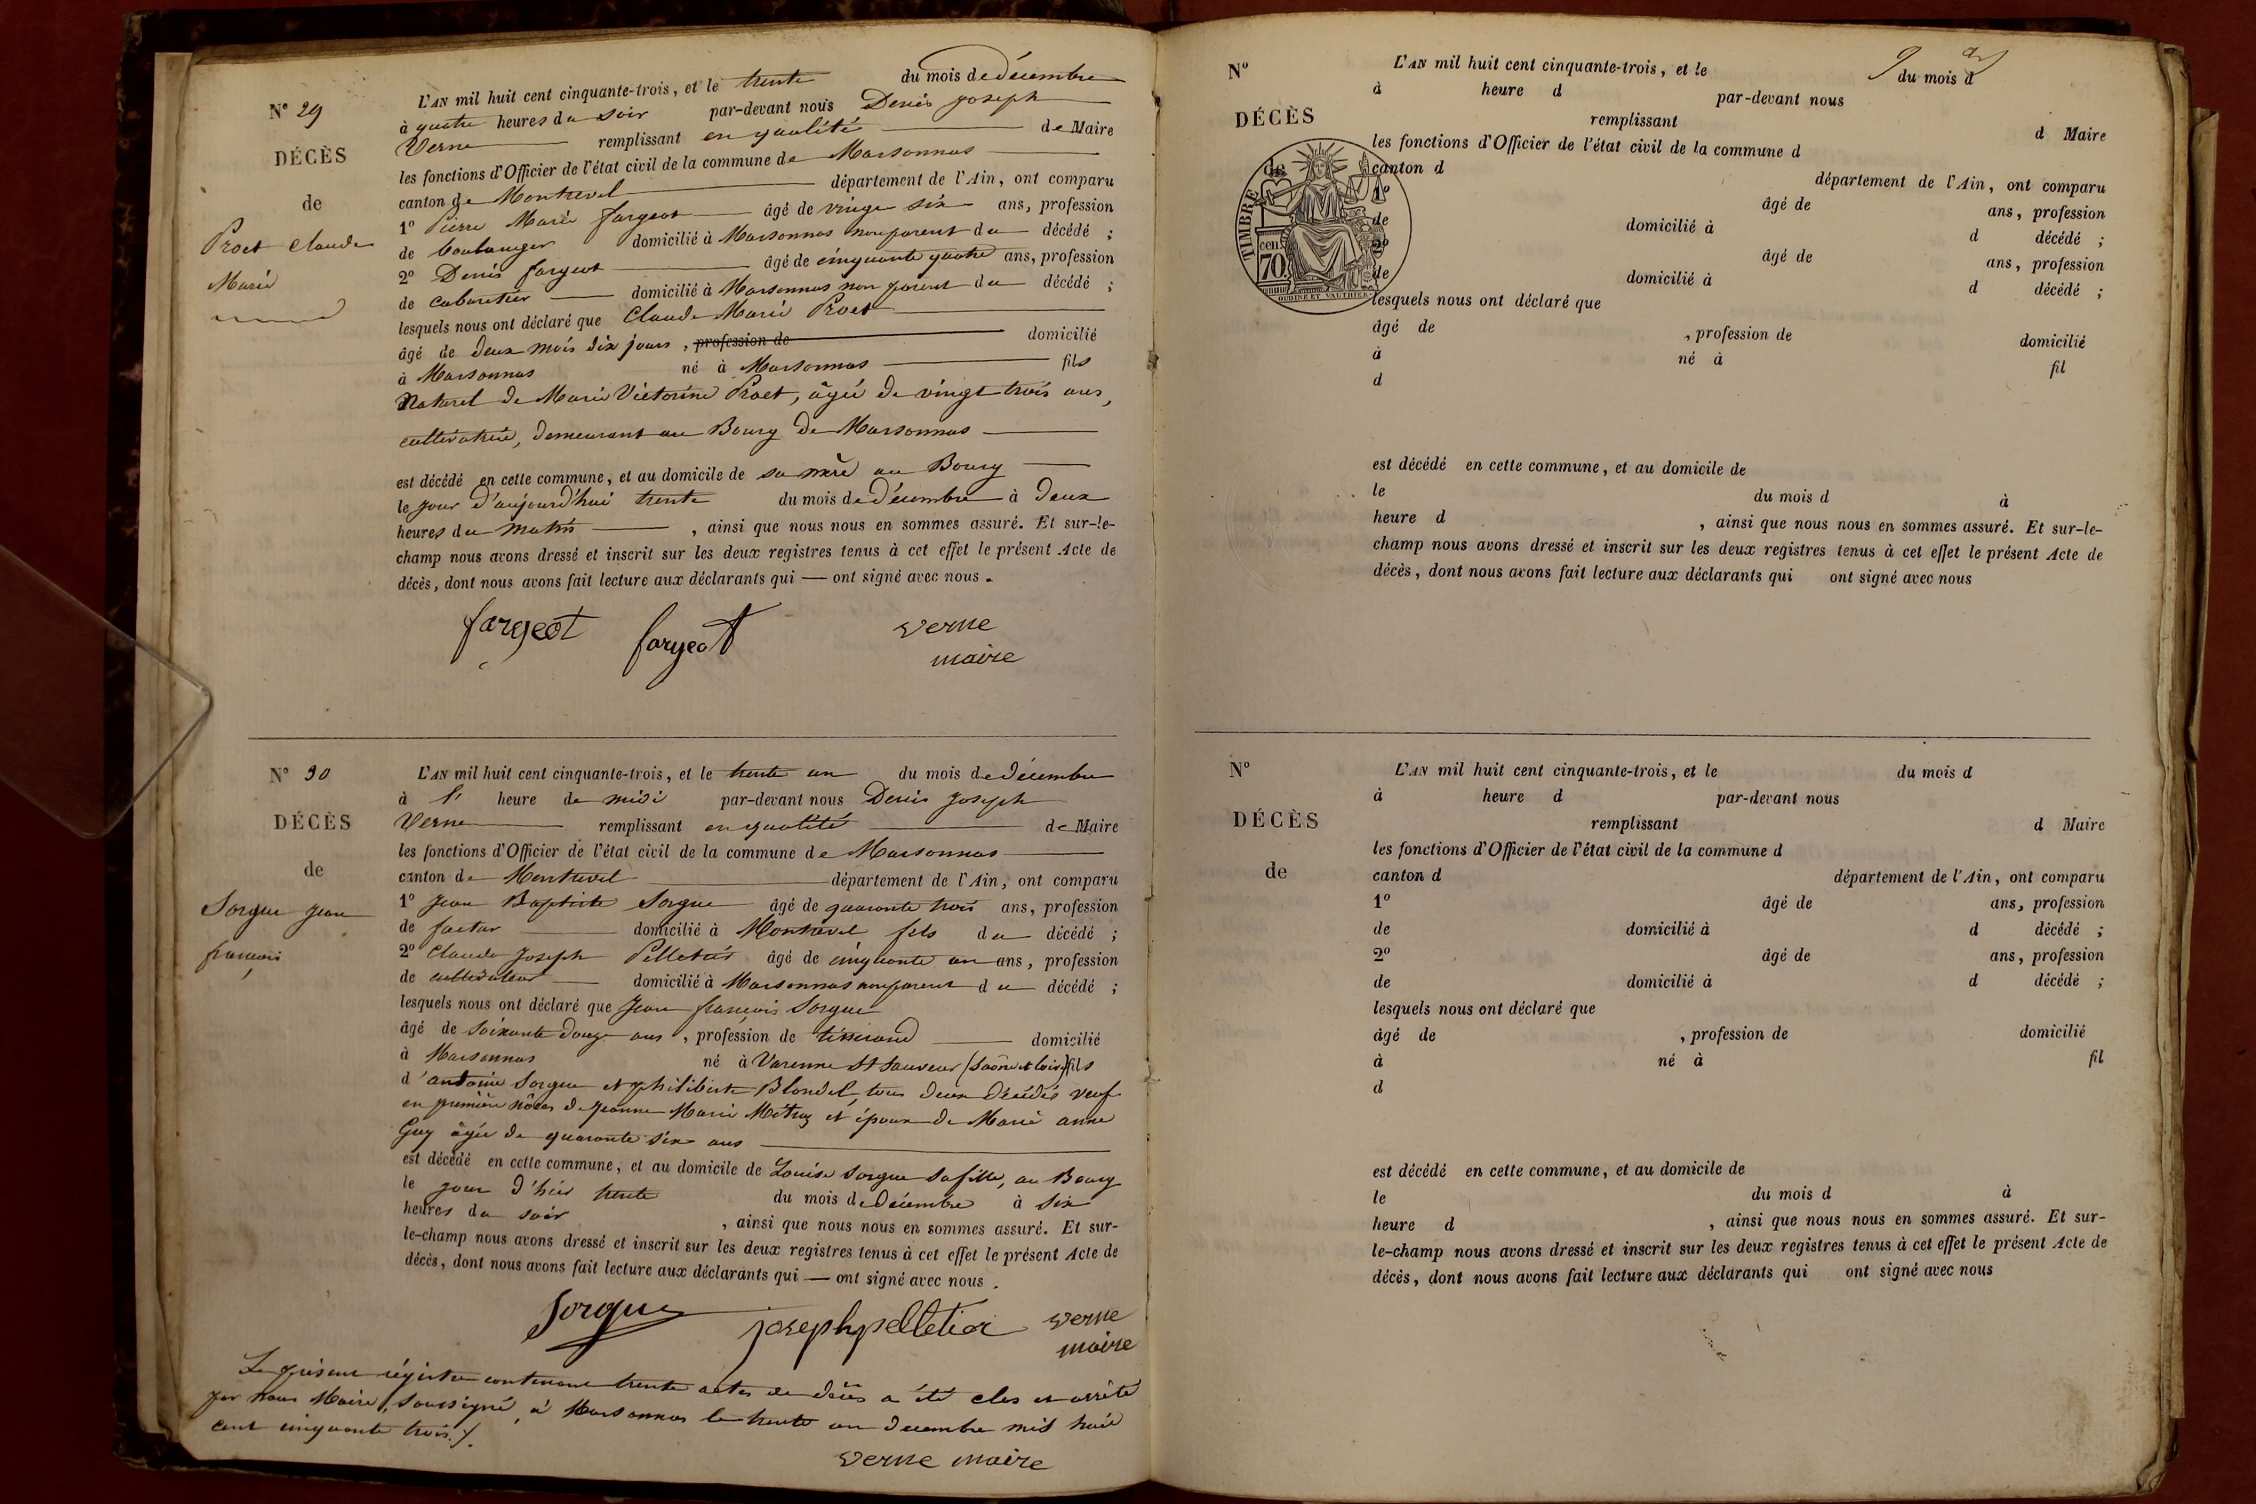 N° 29
DÉCÈS
de
Proet Claude
Marie
L'AN mil huit cent cinquante-trois, et le trente du mois de décembre
à quatre heures du soir par-devant nous Denis Joseph
Verne remplissant en qualité de Maire
les fonctions d'Officier de l'état civil de la commune de Marsonnas
canton de Montrevel département de l'Ain, ont comparu
1° Pierre Marie fargeot âgé de vingt six ans, profession
de boulanger domicilié à Marsonnas non parent du décédé ;
2° Denis fargeot âgé de cinquante quatre ans, profession
de cabaretier domicilié à Marsonnas non parent du décédé ;
lesquels nous ont déclaré que Claude Marie Proet
âgé de deux mois dix jours, profession de domicilié
à Marsonnas né à Marsonnas fils
Naturel de Marie Victorine Proet, âgée de vingt trois ans,
cultivatrice, demeurant au Bourg de Marsonnas
est décédé en cette commune, et au domicile de sa mère au Bourg
le jour d'aujourd'hui trente du mois de décembre à deux
heures du matin, ainsi que nous nous en sommes assuré. Et sur-le-
champ nous avons dressé et inscrit sur les deux registres tenus à cet effet le présent Acte de
décès, dont nous avons fait lecture aux déclarants qui — ont signé avec nous.
fargeot fargeot verne
maire
N° 30
DÉCÈS
de
Sorgue Jean
françois
L'AN mil huit cent cinquante-trois, et le trente un du mois de décembre
à l' heure de midi par-devant nous Denis Joseph
Verne remplissant en qualité de Maire
les fonctions d'Officier de l'état civil de la commune de Marsonnas
canton de Montrevel département de l'Ain, ont comparu
1° Jean Baptiste Sorgue âgé de quarante trois ans, profession
de facteur domicilié à Montrevel fils du décédé ;
2° Claude Joseph Pelletier âgé de cinquante un ans, profession
de cultivateur domicilié à Marsonnas non parent du décédé ;
lesquels nous ont déclaré que Jean françois Sorgue
âgé de soixante douze ans, profession de tisserand domicilié
à Marsonnas né à Varenne St Sauveur (Saône et Loire) fils
d'antoine Sorgue et philiberte Blondel, tous deux décédés veuf
en première nôces de jeanne Marie Metraz et époux de Marie anne
Guy âgée de quarante six ans
est décédé en cette commune, et au domicile de Louise Sorgue sa fille, au Bourg
le jour d'hier trente du mois de décembre à six
heures du soir, ainsi que nous nous en sommes assuré. Et sur-
le-champ nous avons dressé et inscrit sur les deux registres tenus à cet effet le présent Acte de
décès, dont nous avons fait lecture aux déclarants qui — ont signé avec nous.
Sorgue joseph pelletier verne
maire
Le présent régistre contenant trente actes de décès a été clos et arrêté
par nous Maire soussigné, à Marsonnas le trente un décembre mil huit
cent cinquante trois.
verne maire
N°
DÉCÈS
de
TIMBRE
cen
70.
OUDINÉ ET VAUTHIER
L'AN mil huit cent cinquante-trois, et le du mois d
à heure d par-devant nous
remplissant d Maire
les fonctions d'Officier de l'état civil de la commune d
canton d département de l'Ain, ont comparu
1° âgé de ans, profession
de domicilié à d décédé ;
2° âgé de ans, profession
de domicilié à d décédé ;
lesquels nous ont déclaré que
âgé de , profession de domicilié
à né à fil
d
est décédé en cette commune, et au domicile de
le du mois d à
heure d , ainsi que nous nous en sommes assuré. Et sur-le-
champ nous avons dressé et inscrit sur les deux registres tenus à cet effet le présent Acte de
décès, dont nous avons fait lecture aux déclarants qui ont signé avec nous
N°
DÉCÈS
de
L'AN mil huit cent cinquante-trois, et le du mois d
à heure d par-devant nous
remplissant d Maire
les fonctions d'Officier de l'état civil de la commune d
canton d département de l'Ain, ont comparu
1° âgé de ans, profession
de domicilié à d décédé ;
2° âgé de ans, profession
de domicilié à d décédé ;
lesquels nous ont déclaré que
âgé de , profession de domicilié
à né à fil
d
est décédé en cette commune, et au domicile de
le du mois d à
heure d , ainsi que nous nous en sommes assuré. Et sur-
le-champ nous avons dressé et inscrit sur les deux registres tenus à cet effet le présent Acte de
décès, dont nous avons fait lecture aux déclarants qui ont signé avec nous